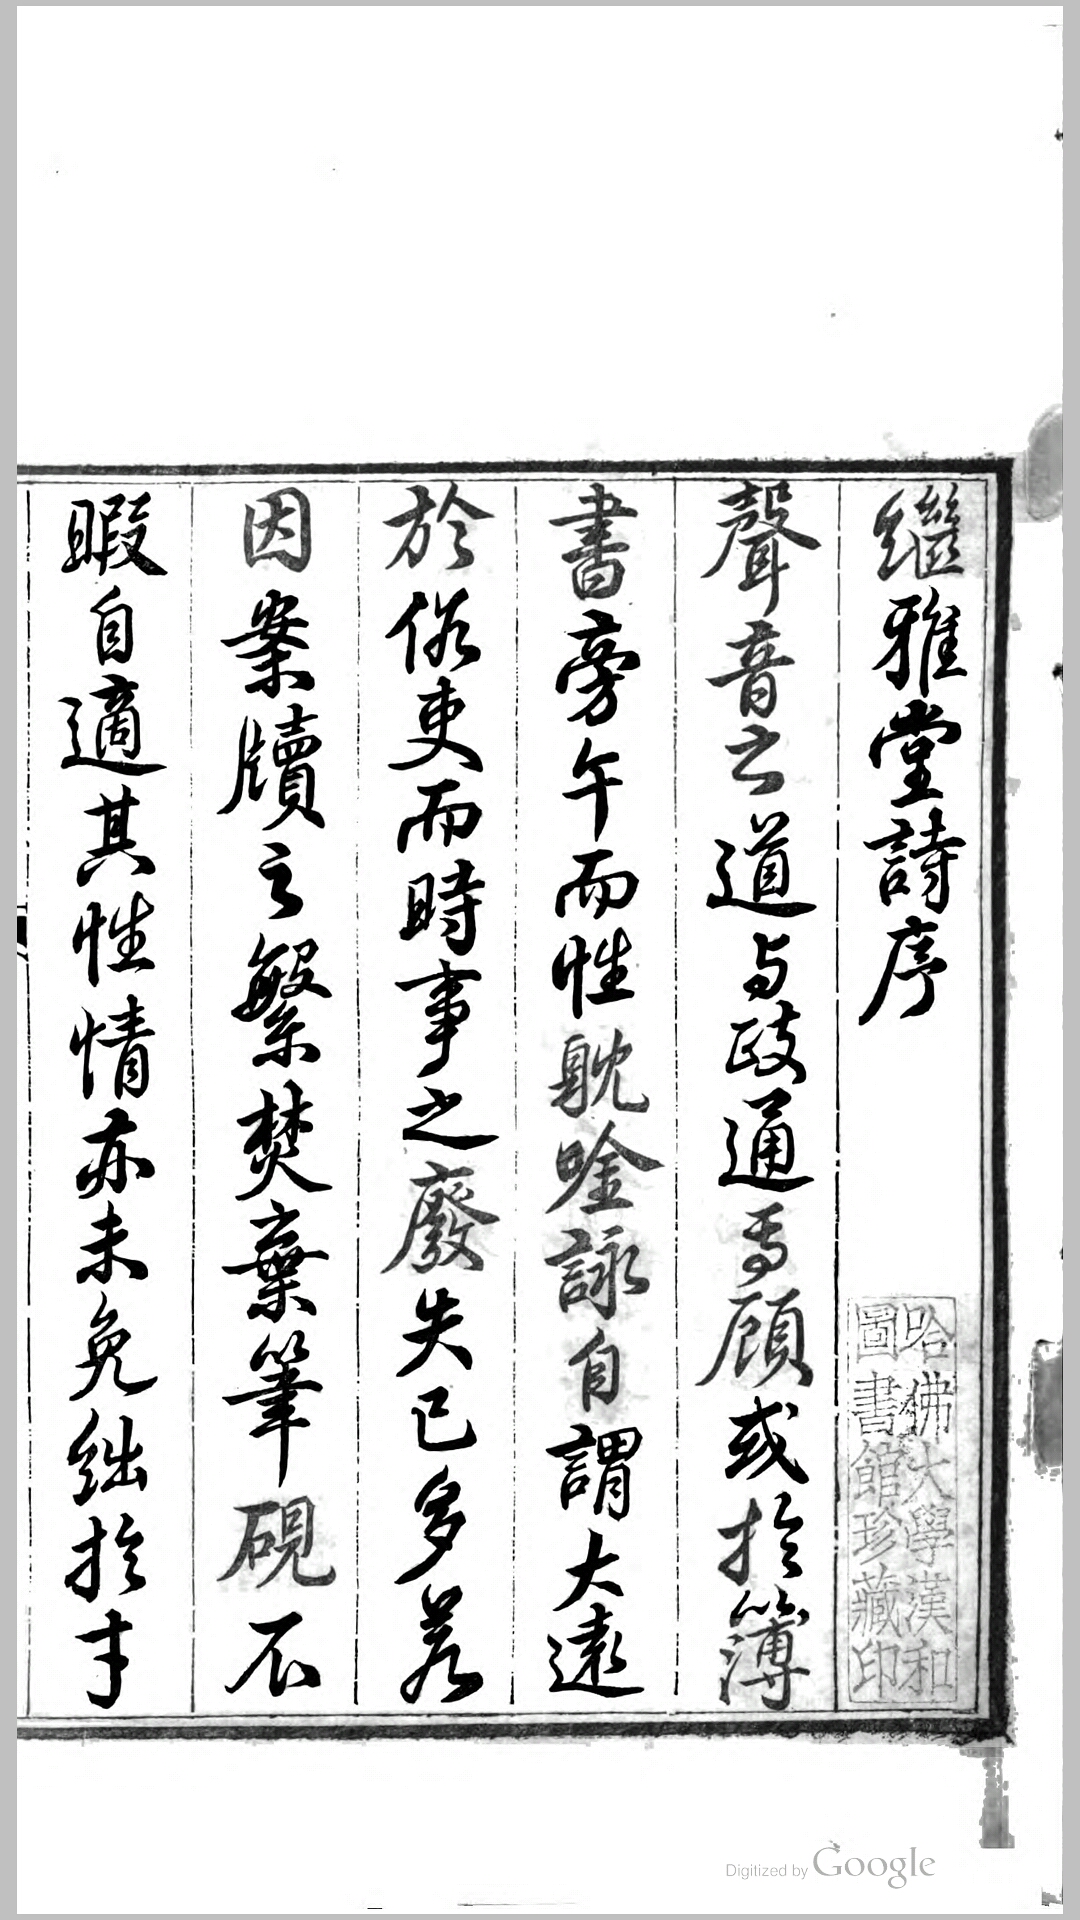 繼雅堂詩序
聲音之道与政通焉顧或扵簿
書旁午而性耽唫詠自謂大遠
於俗吏而時事之廢失已多若
因案牘之繁焚棄筆硯不
暇自適其性情亦未免絀扵才
哈佛大學漢和
圖書館珍藏印
Digitized by Google